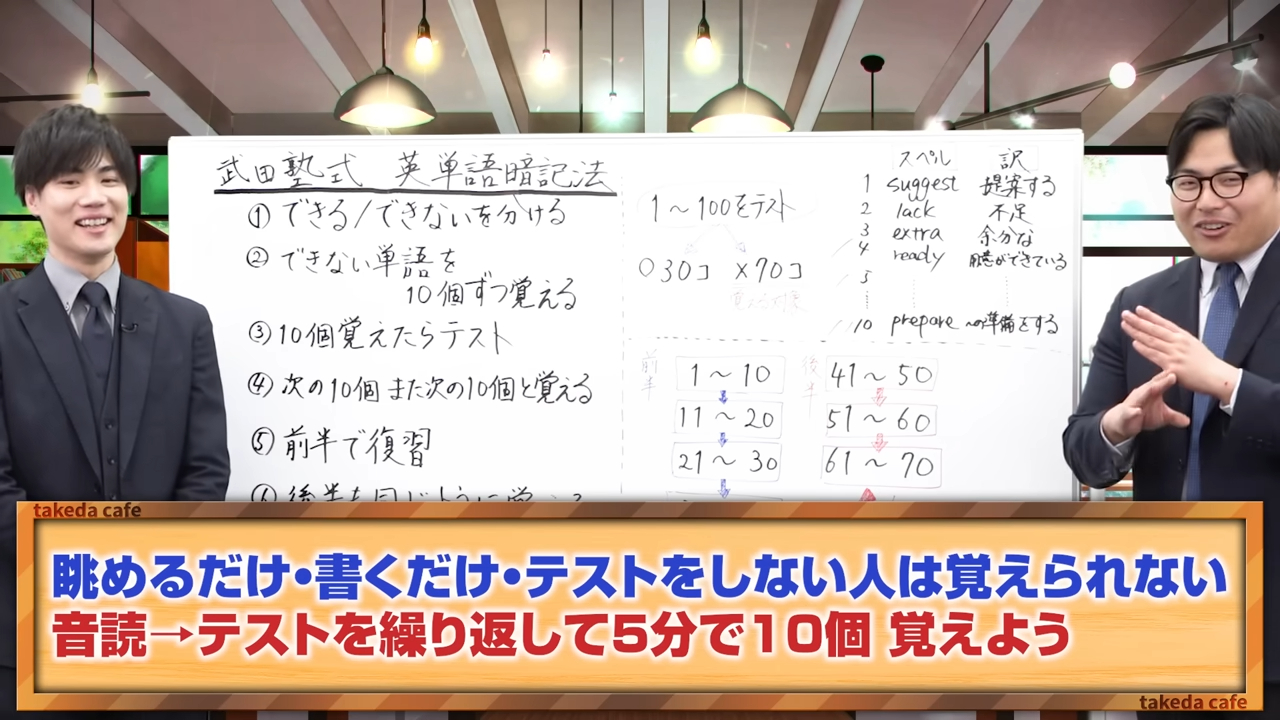 武田塾式 英単語暗記法
①できる/できないを分ける
②できない単語を
10個ずつ覚える
③10個覚えたらテスト
④次の10個 また次の10個と覚える
⑤前半で復習
1〜100をテスト
○30コ ×70コ
スペル 訳
1 suggest 提案する
2 lack 不足
3 extra 余分な
4 ready 用意ができている
5
10 prepare 〜の準備をする
前半
1〜10
11〜20
21〜30
後半
41〜50
51〜60
61〜70
takeda cafe
眺めるだけ・書くだけ・テストをしない人は覚えられない
音読→テストを繰り返して5分で10個 覚えよう
takeda cafe